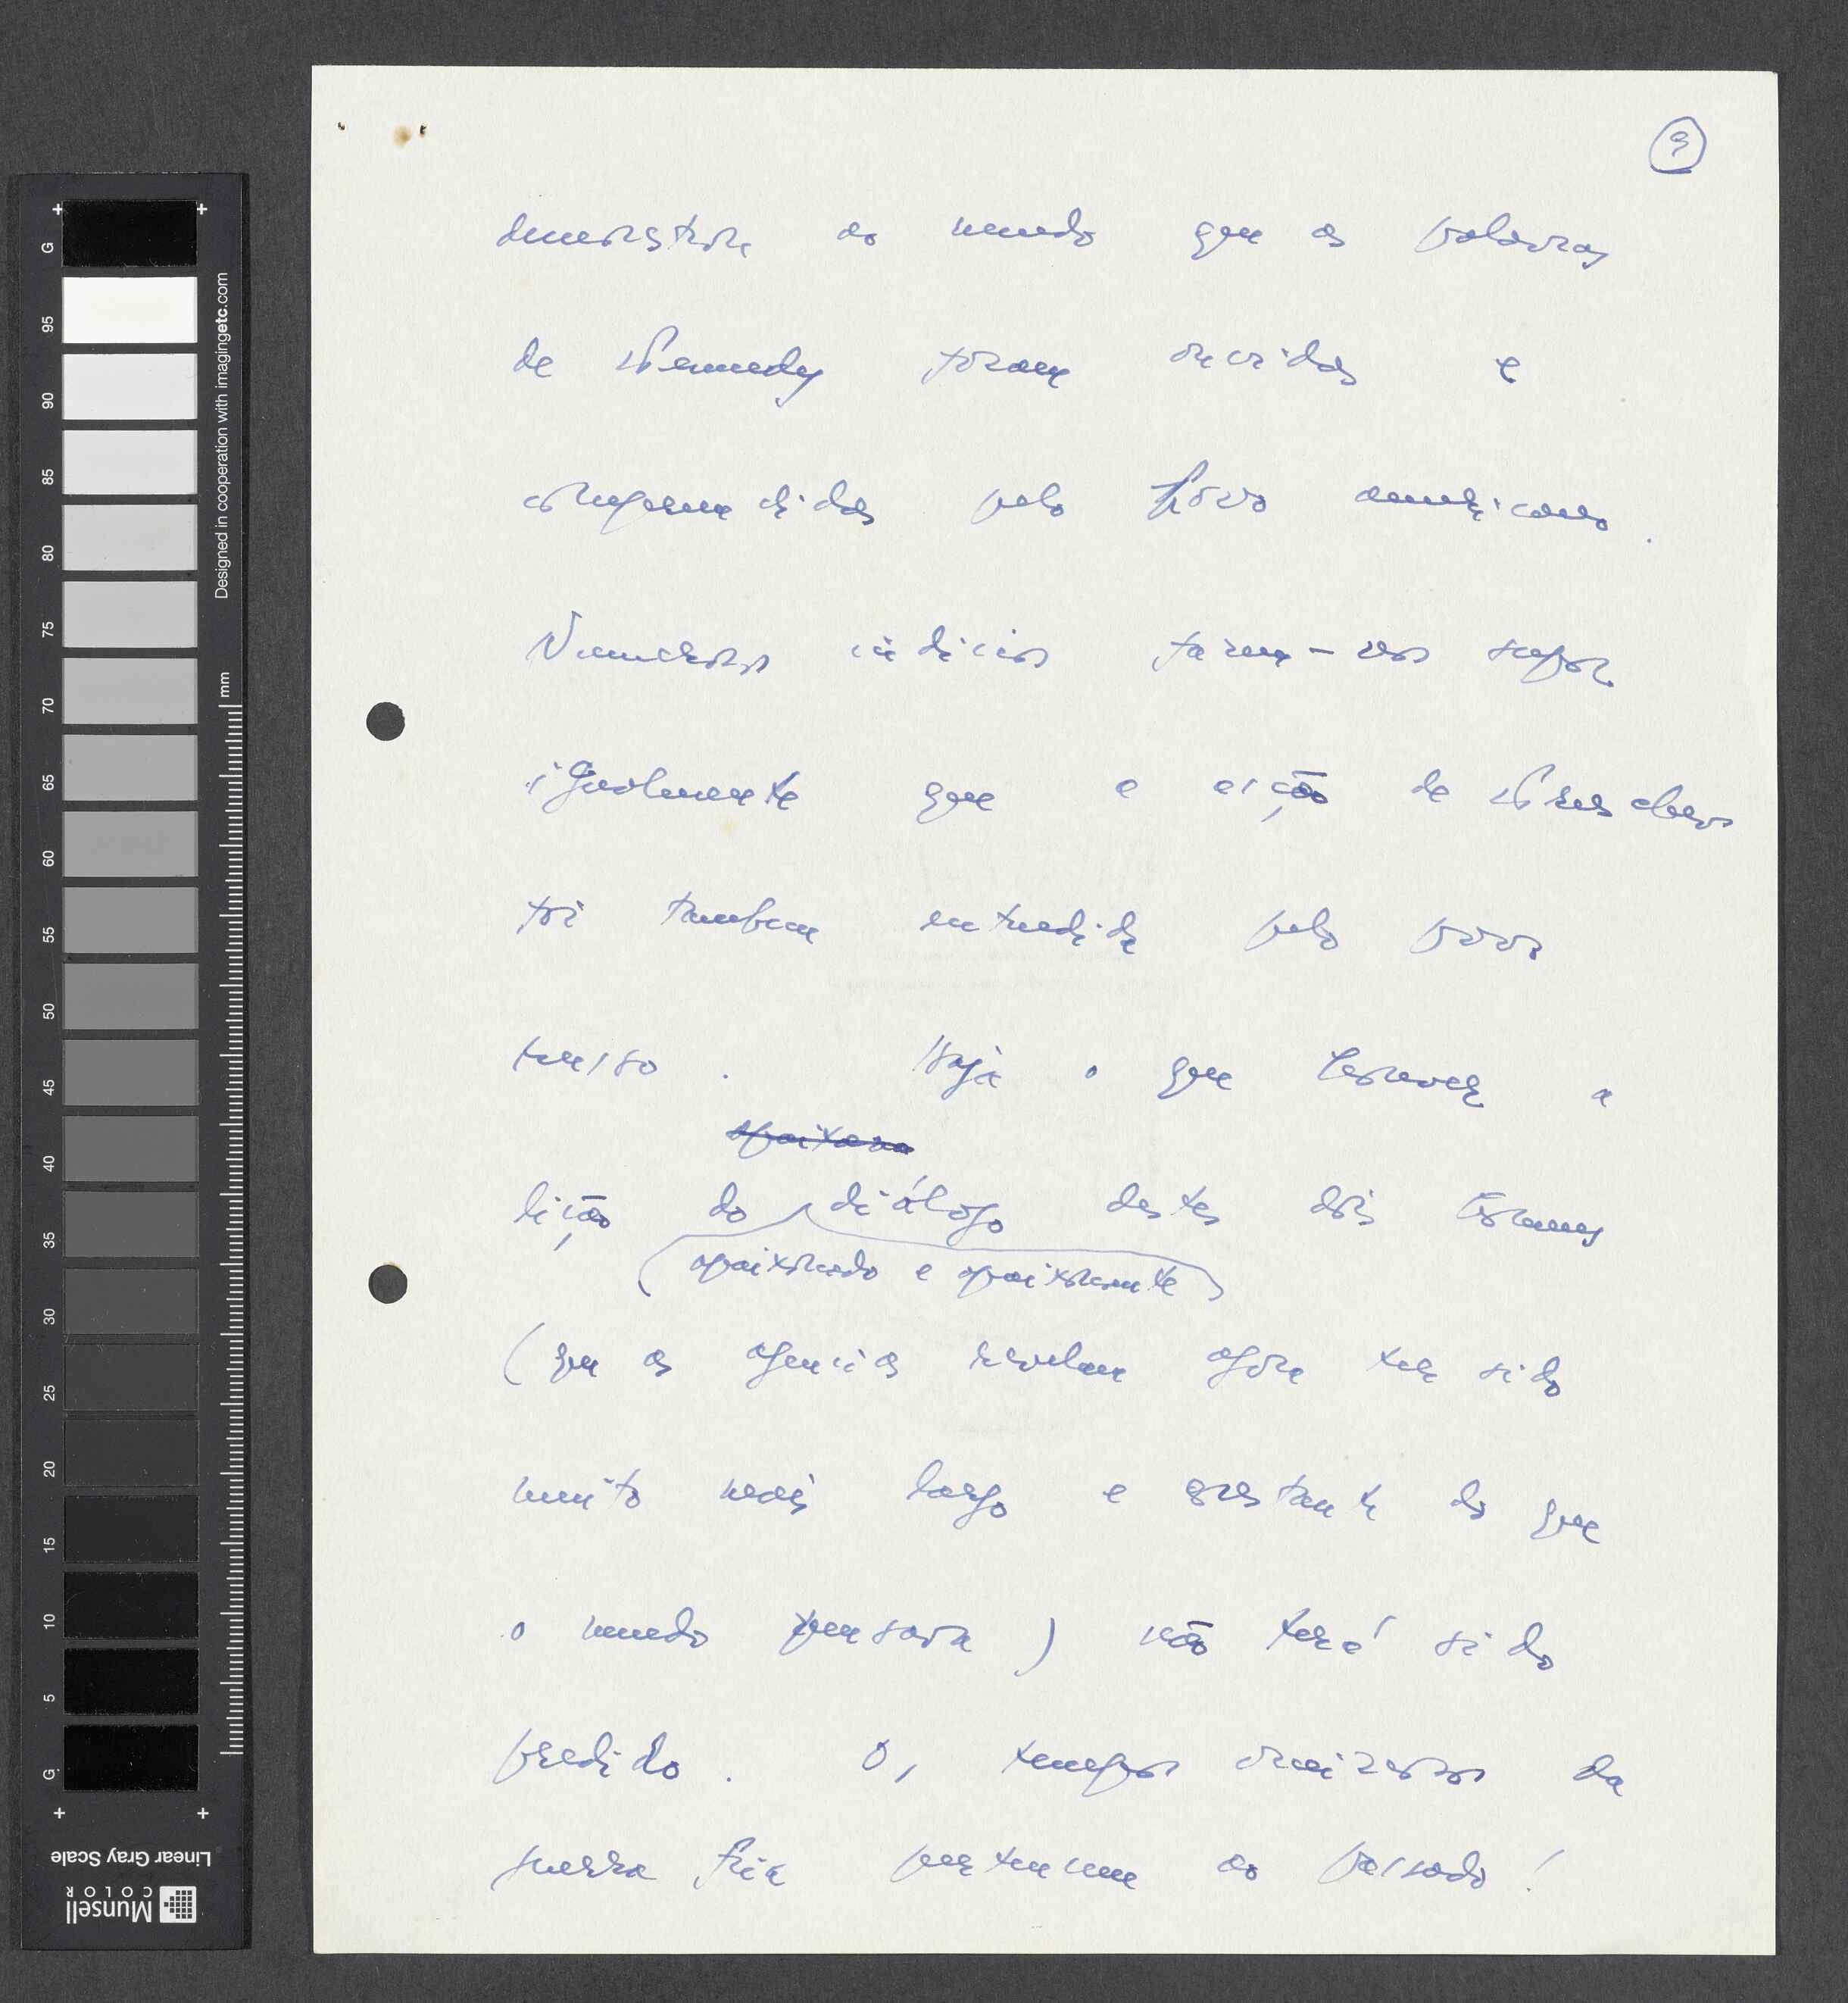 9
demonstrou ao mundo que as palavras
de Kennedy foram ouvidas e
compreendidas pelo povo americano.
Numerosos indicios fazem-nos supor
igualmente que a lição de Kruschev
foi tambem entendida pelo povo
russo. Haja o que houver a
apaixona
lição do diálogo destes dois homens
(apaixonado e apaixonante)
(que as agencias revelam agora ter sido
muito mais largo e constante do que
o mundo pensava) não terá sido
perdido. Os tempos da
guerra fria pertencem ao passado!
G 95 90 85 80 75 70 65 60 55 50 45 40 35 30 25 20 15 10 5 G
mm
Designed in cooperation with imagingetc.com
Linear Gray Scale
Munsell
COLOR